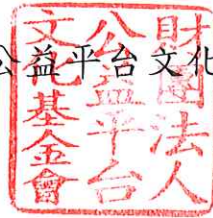 公益平台文化
財團法人
公益平台
文化基金會